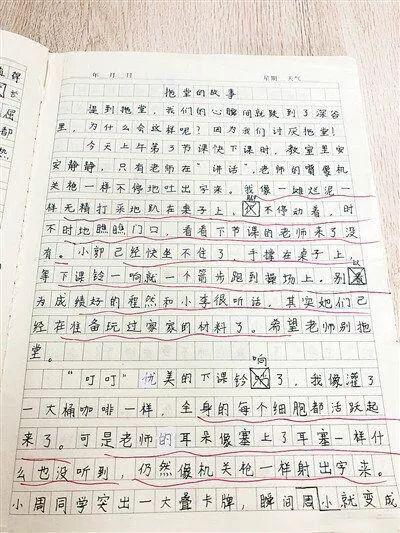 年 月 日 星期 天气
拖堂的故事
提到拖堂，我们的心瞬间就跌到了深谷
里，为什么会这样呢？因为我们讨厌拖堂！
今天上午第3节课快下课时，教室里安
安静静，只有老师在“讲话”，老师的嘴像机
关枪一样不停地吐出字来。我像一摊烂泥一
样无精打采地趴在桌子上，脚不停动着，时
不时地瞧瞧门口，看看下节课的老师来了没
有。小郭已经快坐不住了，手撑在桌子上，
等下课铃一响就一个箭步跑到操场上，别以
为成绩好的程然和小李很听话，其实她们已
经在准备玩过家家的材料了。希望老师别拖
堂。
“叮叮”优美的下课铃响了，我像灌了
一大桶咖啡一样，全身的每个细胞都活跃起
来了。可是老师的耳朵像塞上了耳塞一样什
么也没听到，仍然像机关枪一样射出字来。
小周同学突出一大叠卡牌，瞬间周小就变成